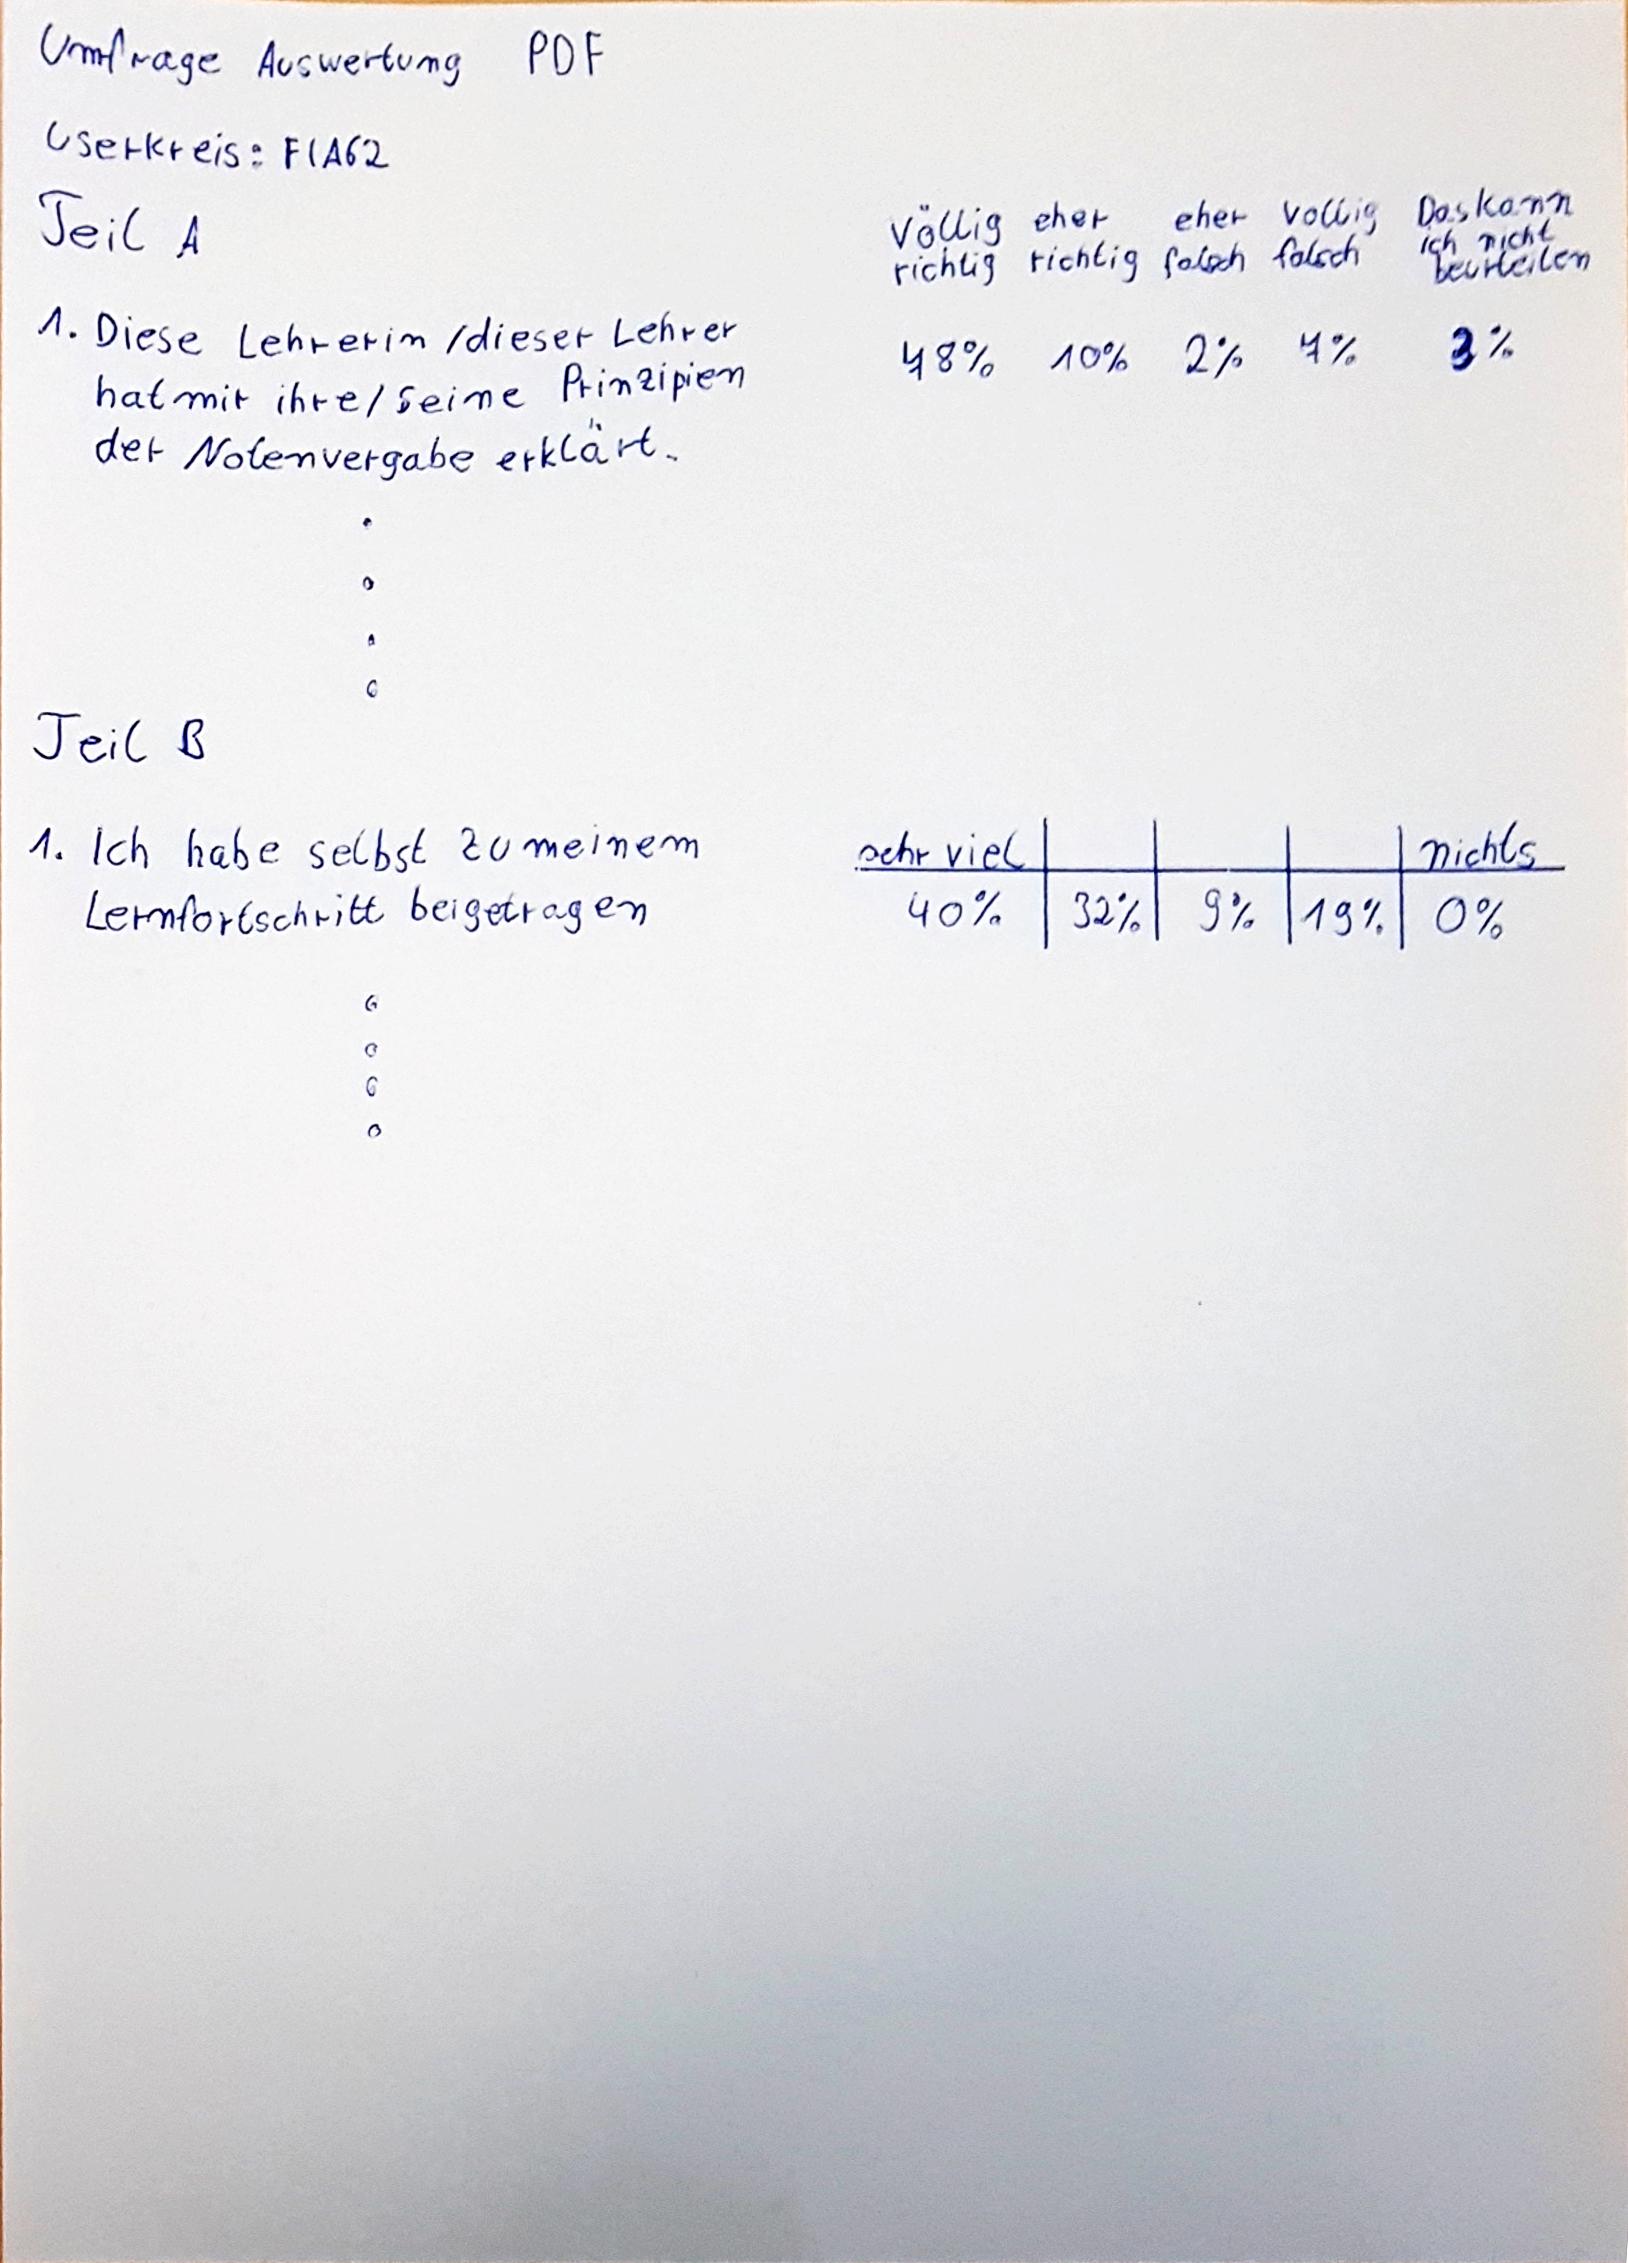 Umfrage Auswertung PDF
Userkreis: FIA62
Teil A
Völlig richtig
eher richtig
eher falsch
völlig falsch
Das kann ich nicht beurteilen
1. Diese Lehrerin/dieser Lehrer
hat mir ihre/seine Prinzipien
der Notenvergabe erklärt.
48% 10% 2% 4% 3%
Teil B
1. Ich habe selbst zu meinem
Lernfortschritt beigetragen
sehr viel nichts
40% 32% 9% 19% 0%